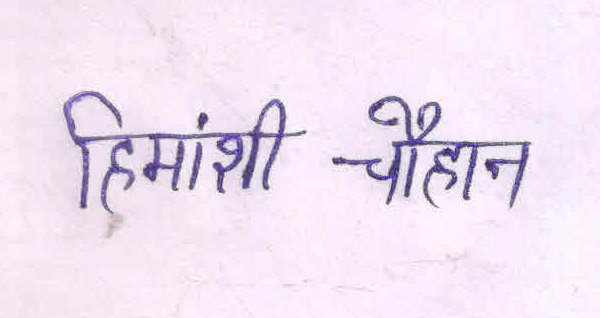 हिमांशी चौहान